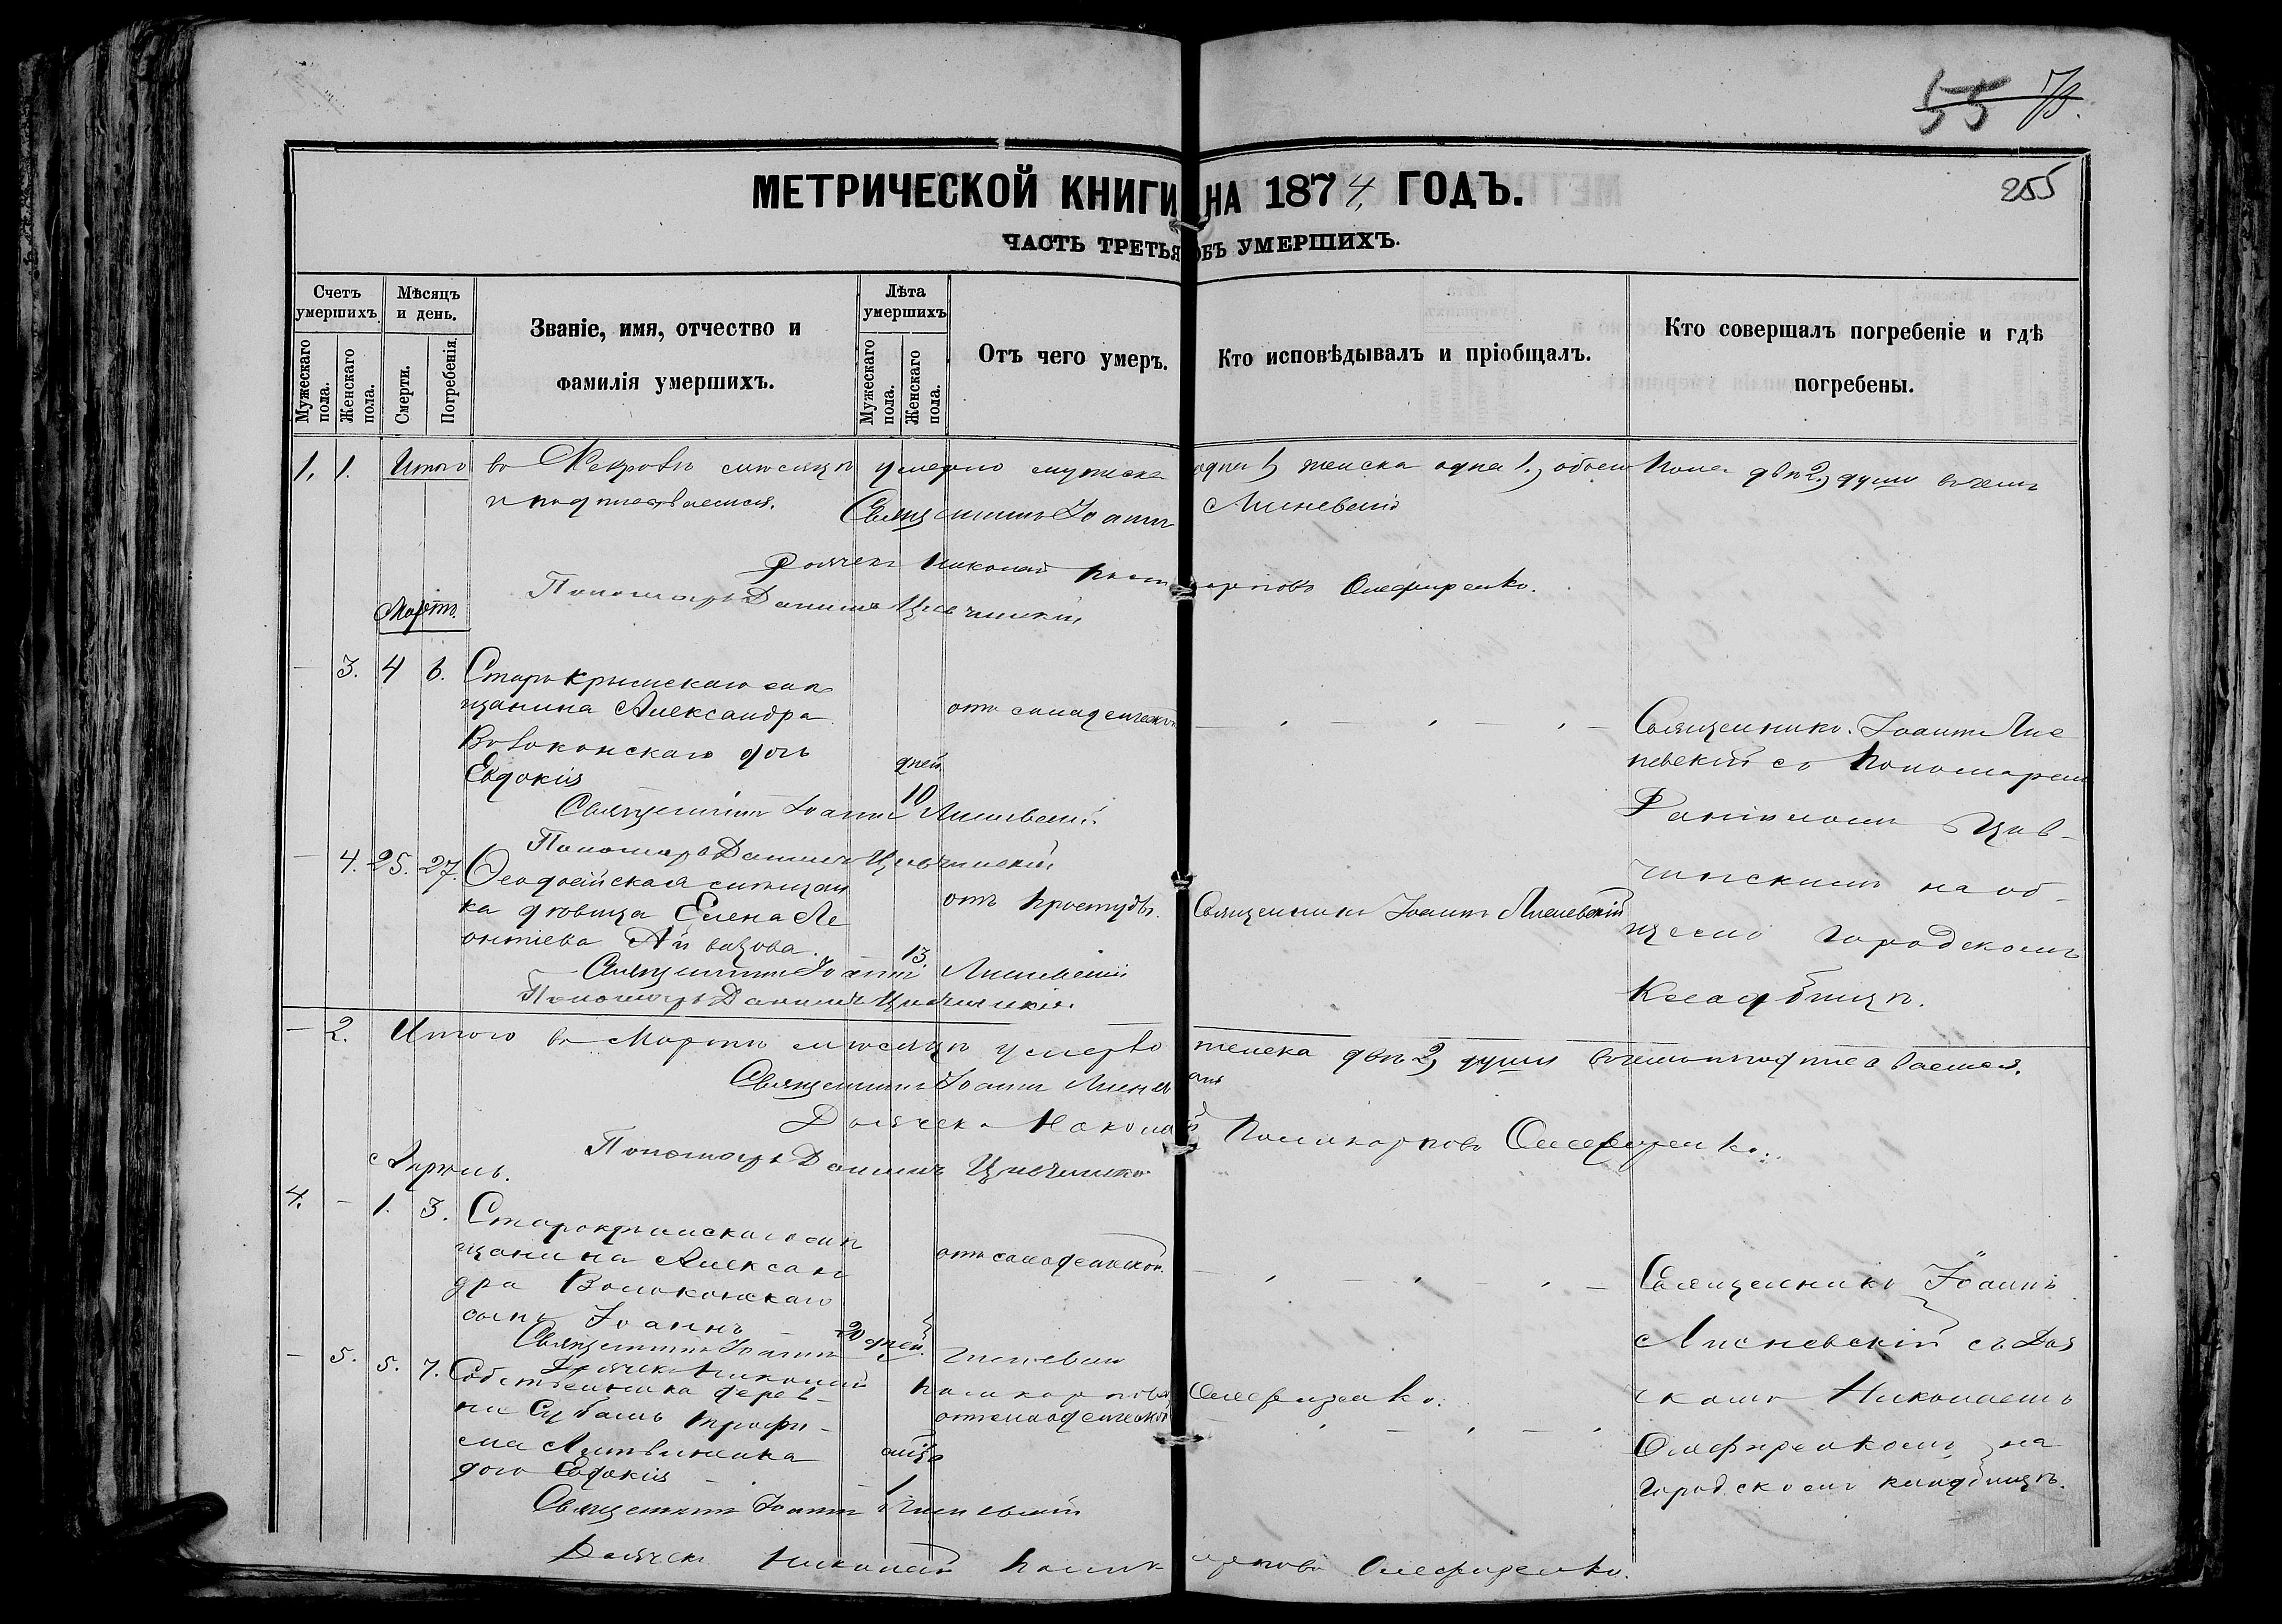 55 73.
МЕТРИЧЕСКОЙ КНИГИ НА 1874 ГОДЪ.
255
ЧАСТЬ ТРЕТЬЯ ОБЪ УМЕРШИХЪ.
Счетъ умершихъ.
Мужескаго пола.
Женскаго пола.
Мѣсяцъ и день.
Смерти.
Погребенія.
Званіе, имя, отчество и
фамилія умершихъ.
Лѣта умершихъ
Мужескаго пола.
Женскаго пола.
Отъ чего умеръ.
Кто исповѣдывалъ и пріобщалъ.
Кто совершалъ погребеніе и гдѣ
погребены.
1. 1. Итого въ Февралѣ мѣсяцѣ умерло мужеска одинъ 1, женска одна 1, обоего пола двѣ 2, души въ чемъ
и подписываемся. Священникъ Іоаннъ Лисневскій
Дьячекъ Николай Поликарповъ Олефиренко.
Пономарь Даніилъ
Мартъ.
— 3. 4 6. Старокрымскаго мѣ
щанина Александра
Волоконскаго дочь
Евдокія
дней
10
отъ самадческой
Священникъ Іоаннъ Лис
невскій съ Пономаремъ
Даніиломъ Цив-
чинскимъ на об-
щемъ городскомъ
Кладбищѣ.
Священникъ Іоаннъ Лисневскій
Пономарь Даніилъ
— 4. 25. 27. Ѳеодосійская мѣщан
ка дѣвица Елена Ле
онтіева Айвазова.
13.
отъ простуды.
Священникъ Іоаннъ Лисневскій
Священникъ Іоаннъ Лисневскій
Пономарь Даніилъ
— 2. Итого въ Мартѣ мѣсяцѣ умерло женска двѣ 2, души въ чемъ и подписываемся.
Священникъ Іоаннъ Лисневскій
Дьячекъ Николай Поликарповъ Олефиренко.
Пономарь Даніилъ
Апрѣль.
4. — 1. 3. Старокрымскаго мѣ
щанина Алексан
дра Волоконскаго
сынъ Іоаннъ
20 дней.
Священникъ Іоаннъ
Лисневскій съ Дья
чкомъ Николаемъ
Олефиренкомъ на
городскомъ кладбищѣ.
Священникъ Іоаннъ Лисневскій
Дьячекъ Николай Поликарповъ Олефиренко.
— 5. 5. 7. Собственника дерев-
ни Субашъ Трофи-
ма Литвиненка
дочь Евдокія
1
Священникъ Іоаннъ Лисневскій
Дьячекъ Николай Поликарповъ Олефиренко.